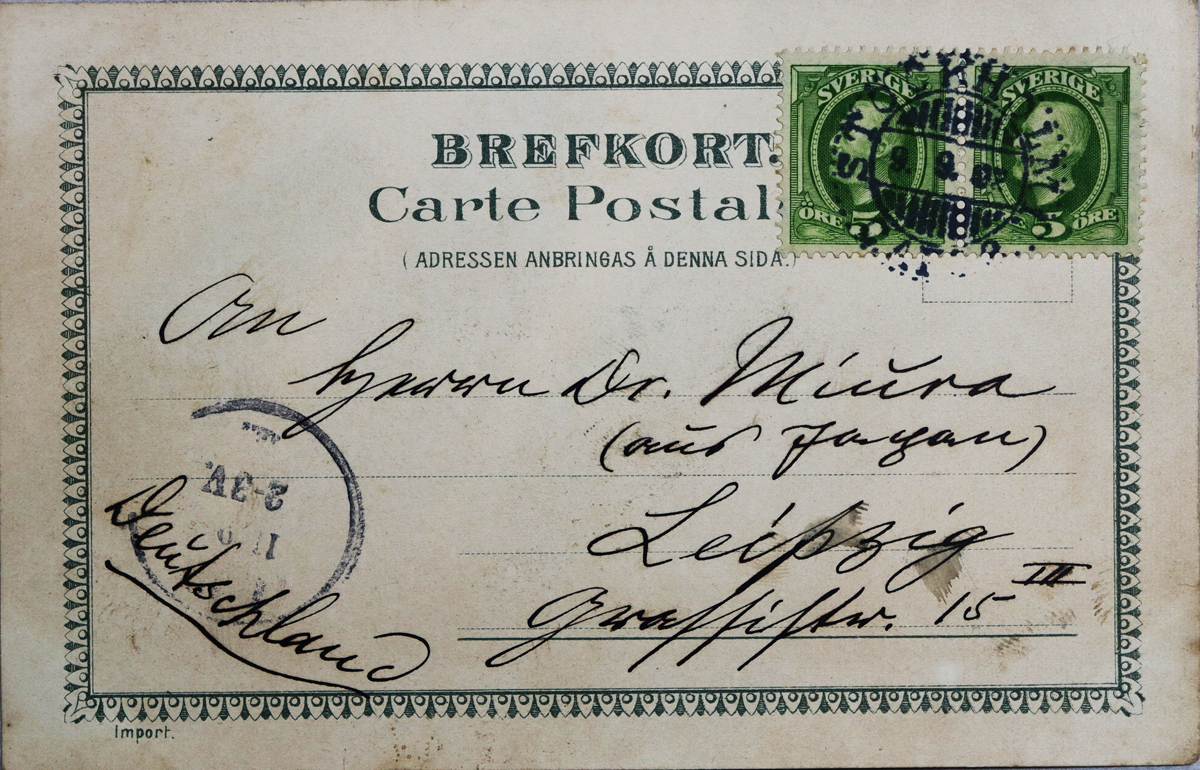 BREFKORT.
Carte Postal
(ADRESSEN ANBRINGAS Å DENNA SIDA.)
SVERIGE SVERIGE
ÖRE 5 5 ÖRE
STOCKHOLM
9. 9.
An
Herrn Dr. Miura
(aus Japan)
Leipzig
Grassistr. 15 III
2-3V.
Deutschland
Import.